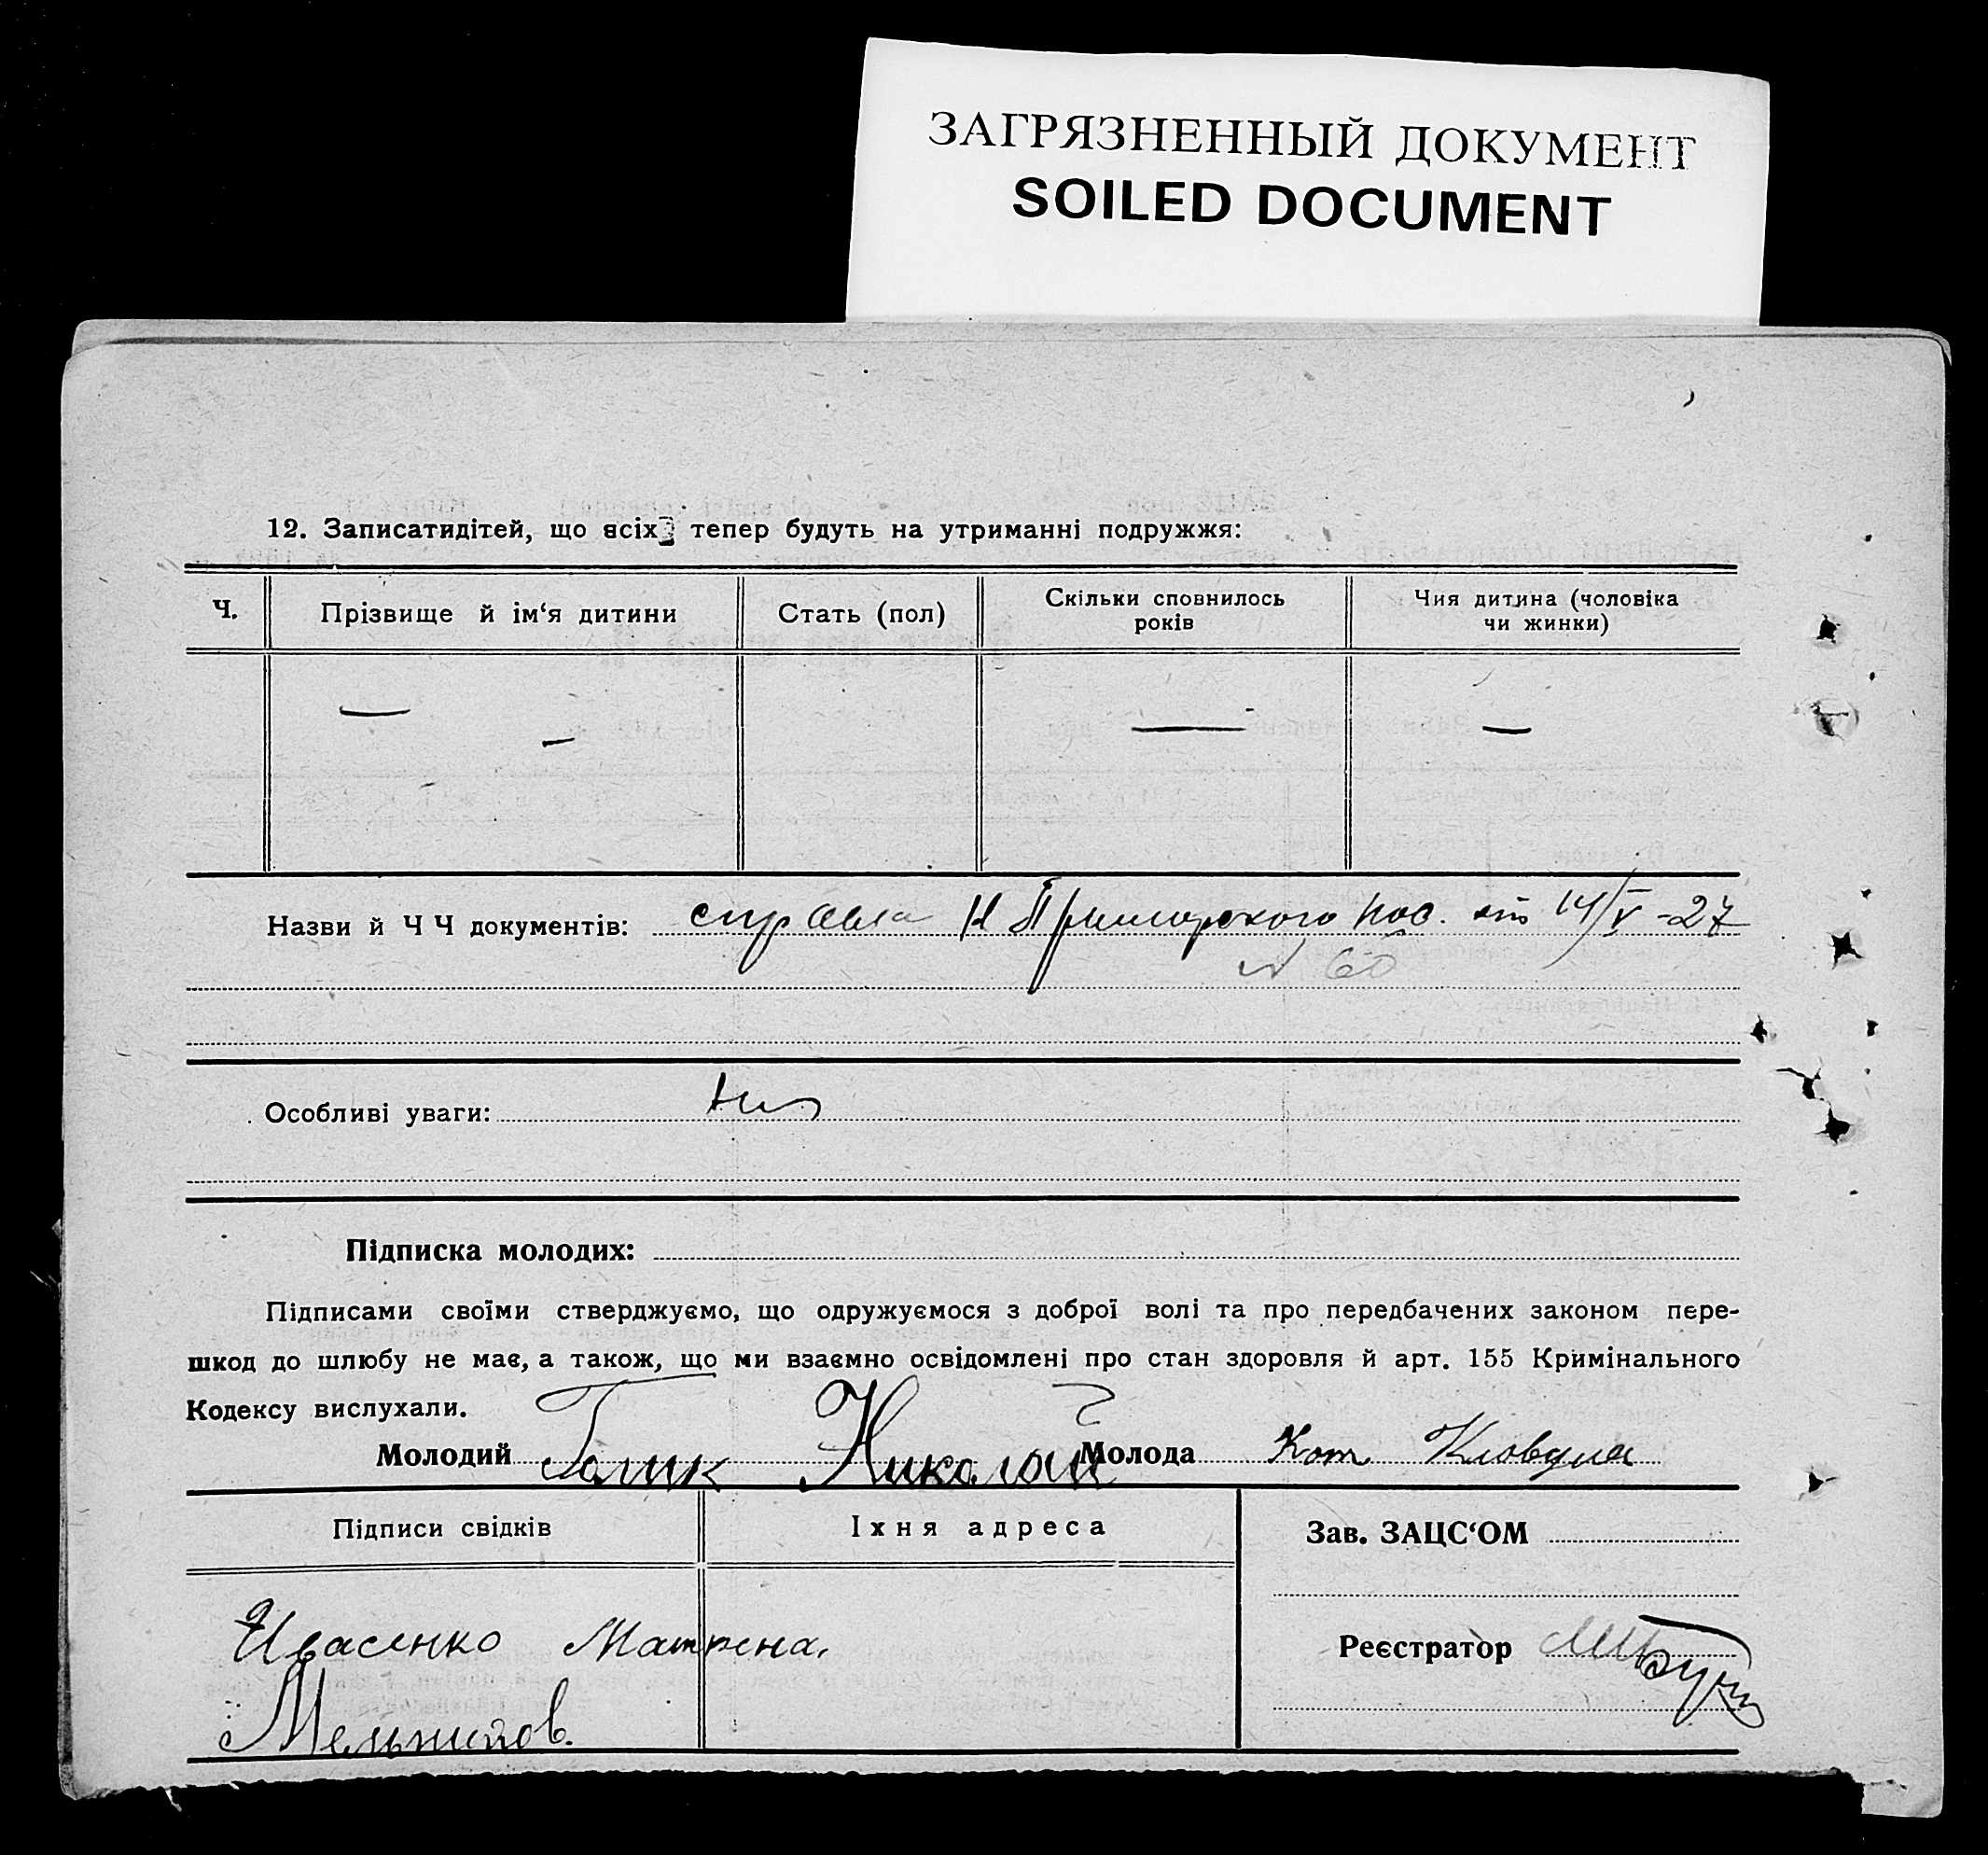 ЗАГРЯЗНЕННЫЙ ДОКУМЕНТ
SOILED DOCUMENT
12. Записатидітей, що всіх тепер будуть на утриманні подружжя:
Ч. Прізвище й ім‘я дитини Стать (пол) Скільки сповнилось років Чия дитина (чоловіка чи жинки)
— — — —
Назви й Ч Ч документів: справка Приморского от 14/V -27
№ 60
Особливі уваги:
Підписка молодих:
Підписами своїми стверджуємо, що одружуємося з доброї волі та про передбачених законом пере-
шкод до шлюбу не має, а також, що ми взаємно освідомлені про стан здоровля й арт. 155 Кримінального
Кодексу вислухали.
Молодий Николай Молода Кот
Підписи свідків Їхня адреса Зав. ЗАЦС‘ОМ
Ивасенко Матрена.
Реєстратор
Мельников.